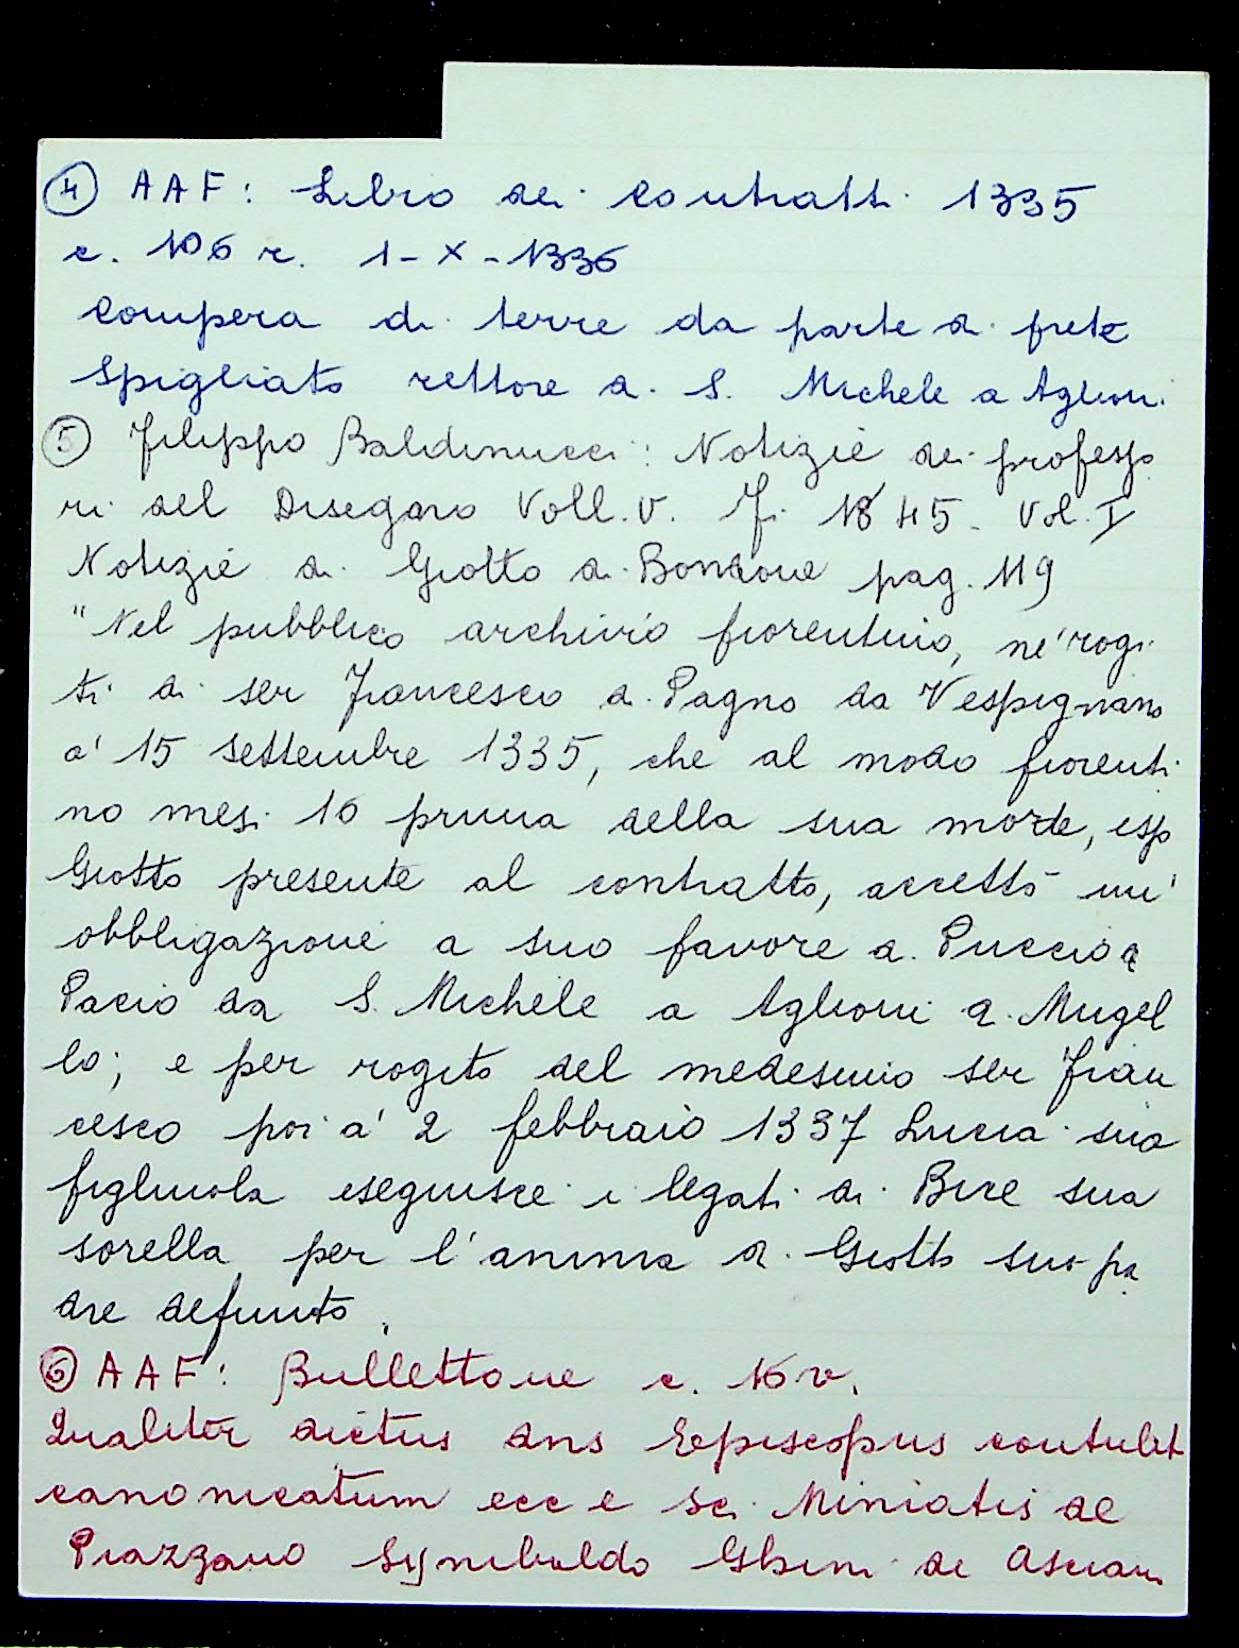 ④ AAF: Libro dei contratti 1335
c. 106 r. 1-X-1336
compera di terre da parte di prete
Spigliato rettore di S. Michele a Aglioni
⑤ Filippo Baldinucci: Notizie dei professo
ri del Disegno Voll. V. Fi 1845 - Vol. I
Notizie di Giotto di Bondone pag. 119
"Nel pubblico archivio fiorentino, ne' rogi
ti di ser Francesco di Pagno da Vespignano
a' 15 settembre 1335, che al modo fiorenti
no mesi 16 prima della sua morte, esso
Giotto presente al contratto, accettò un'
obbligazione a suo favore di Puccio di
Pacio da S. Michele a Aglioni di Mugel
lo; e per rogito del medesimo ser Fran
cesco poi a' 2 febbraio 1337 Lucia sua
figliuola eseguisce i legati di Bice sua
sorella per l'anima di Giotto suo pa
dre defunto.
⑥ AAF: Bullettone c. 16 v.
Qualiter dictus dns Episcopus contulit
canonicatum ecc e sci Miniatis de
Piazzano Synibaldo Ghini de Asciano